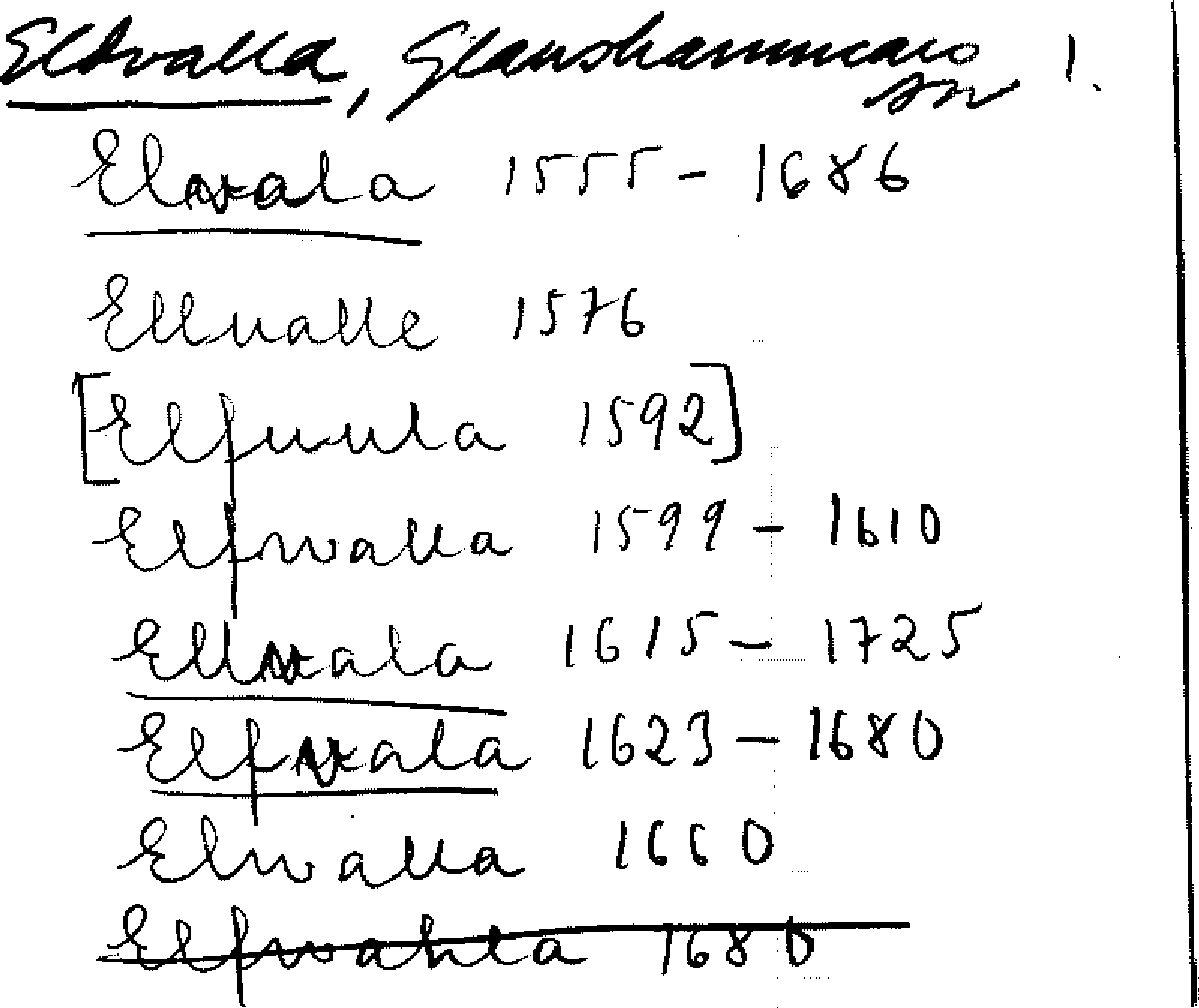 Ellvalla, Glanshammars 1.
sn
Elvala 1555 - 1686
Ellualle 1576
[Elfuula 1592]
Elfwalla 1599 - 1610
Ellvala 1615 - 1725
Elfvala 1623 - 1680
Elwalla 1660
Elfwahla 1680